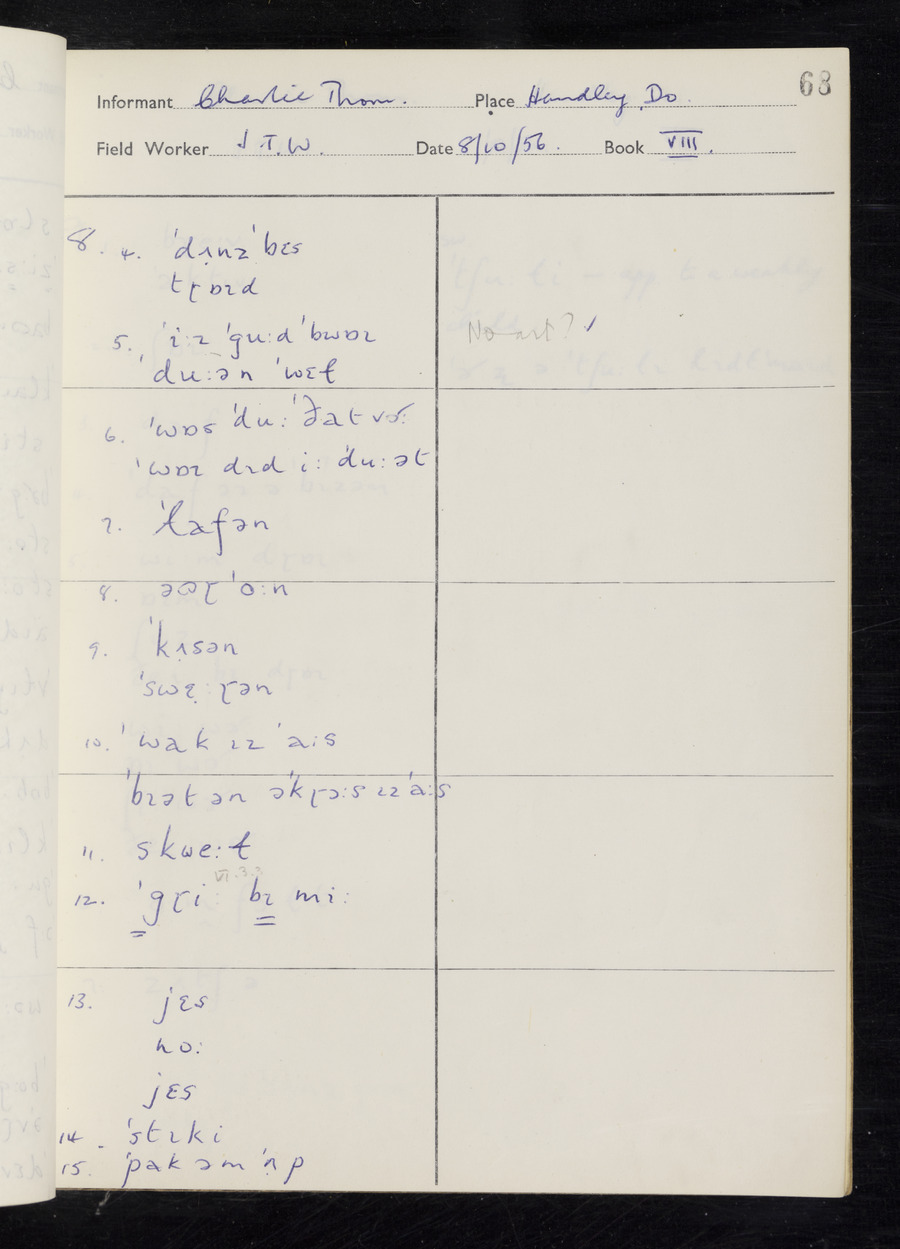 68
Informant Charlie Thorn. Place Handley, Do.
Field Worker J T.W. Date 8/10/56. Book VIII.
8. 4. ˈdʌ̣nzˈbɛs
tɽɒɪd
5. ˈi:z ˈgu:d ˈbwɒɪ
du:ən ˈwɛɫ
No art? ✓
6. ˈwɒs ˈdu: ˈðat vɔ˞:
ˈwɒɪ dɪd i: ˈdu:ət
7. ˈɫafən
8. ˈo:n
9. ˈkɪsən
ˈswɛ̣:ɽən
10. ˈwak ɪz ˈa:s
ˈbɪət ən əkɽɔ:s ɪz ˈa:s
11. skwe:ɫ
VI.3.3
12. ˈgɽi: bɪ mi:
13. jɛs
no:
jɛs
14. ˈstɪki
15. ˈpak əm ˈʌ̣p